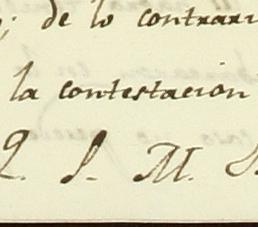 ; de lo contrari
la contestacion
Q. S. M. S